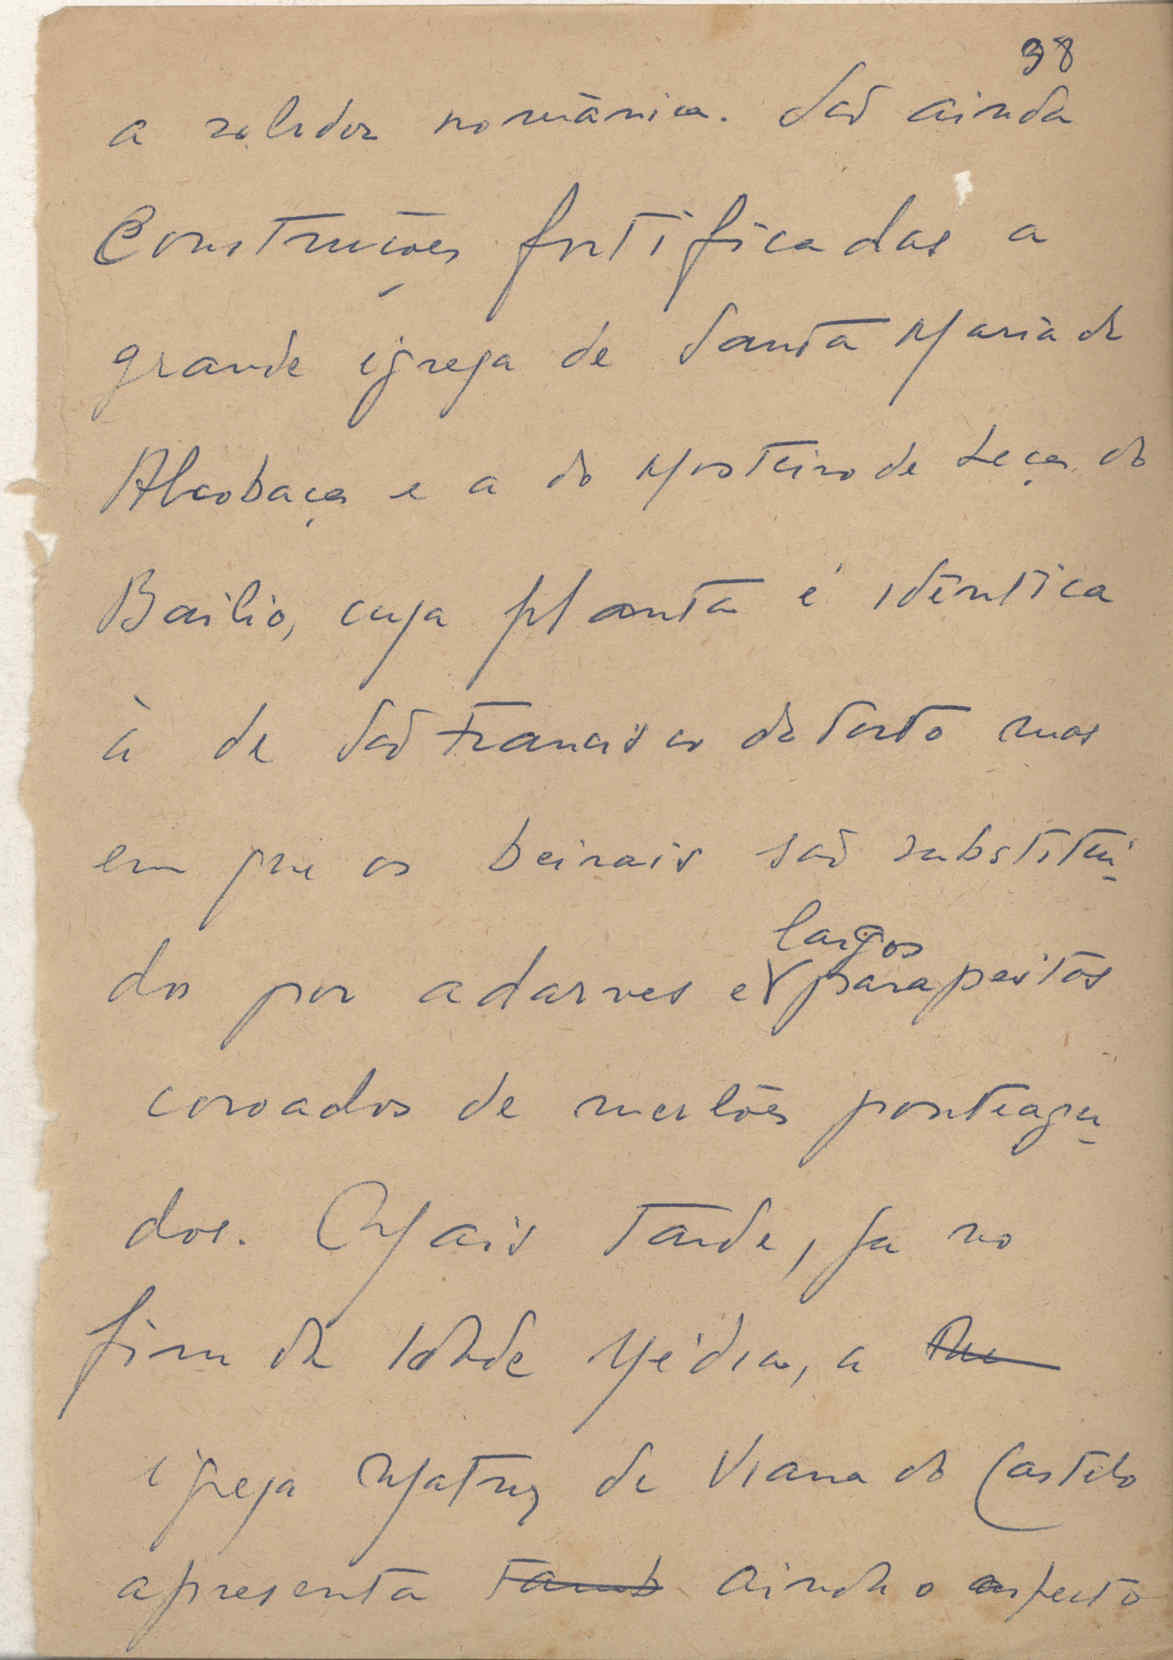 38
a solidez românica. São ainda
Construções fortificadas a
grande igreja de Santa Maria de
Alcobaça e a do Mosteiro de Leça do
Bailio, cuja planta é idêntica
à de São Francisco do Porto mas
em que os beirais são substituí-
dos por adarves e largos parapeitos
coroados de merlões ponteagu-
dos. Mais tarde, ja no
fim da Idade Média, a
igreja Matriz de Viana do Castelo
apresenta tamb ainda o aspecto